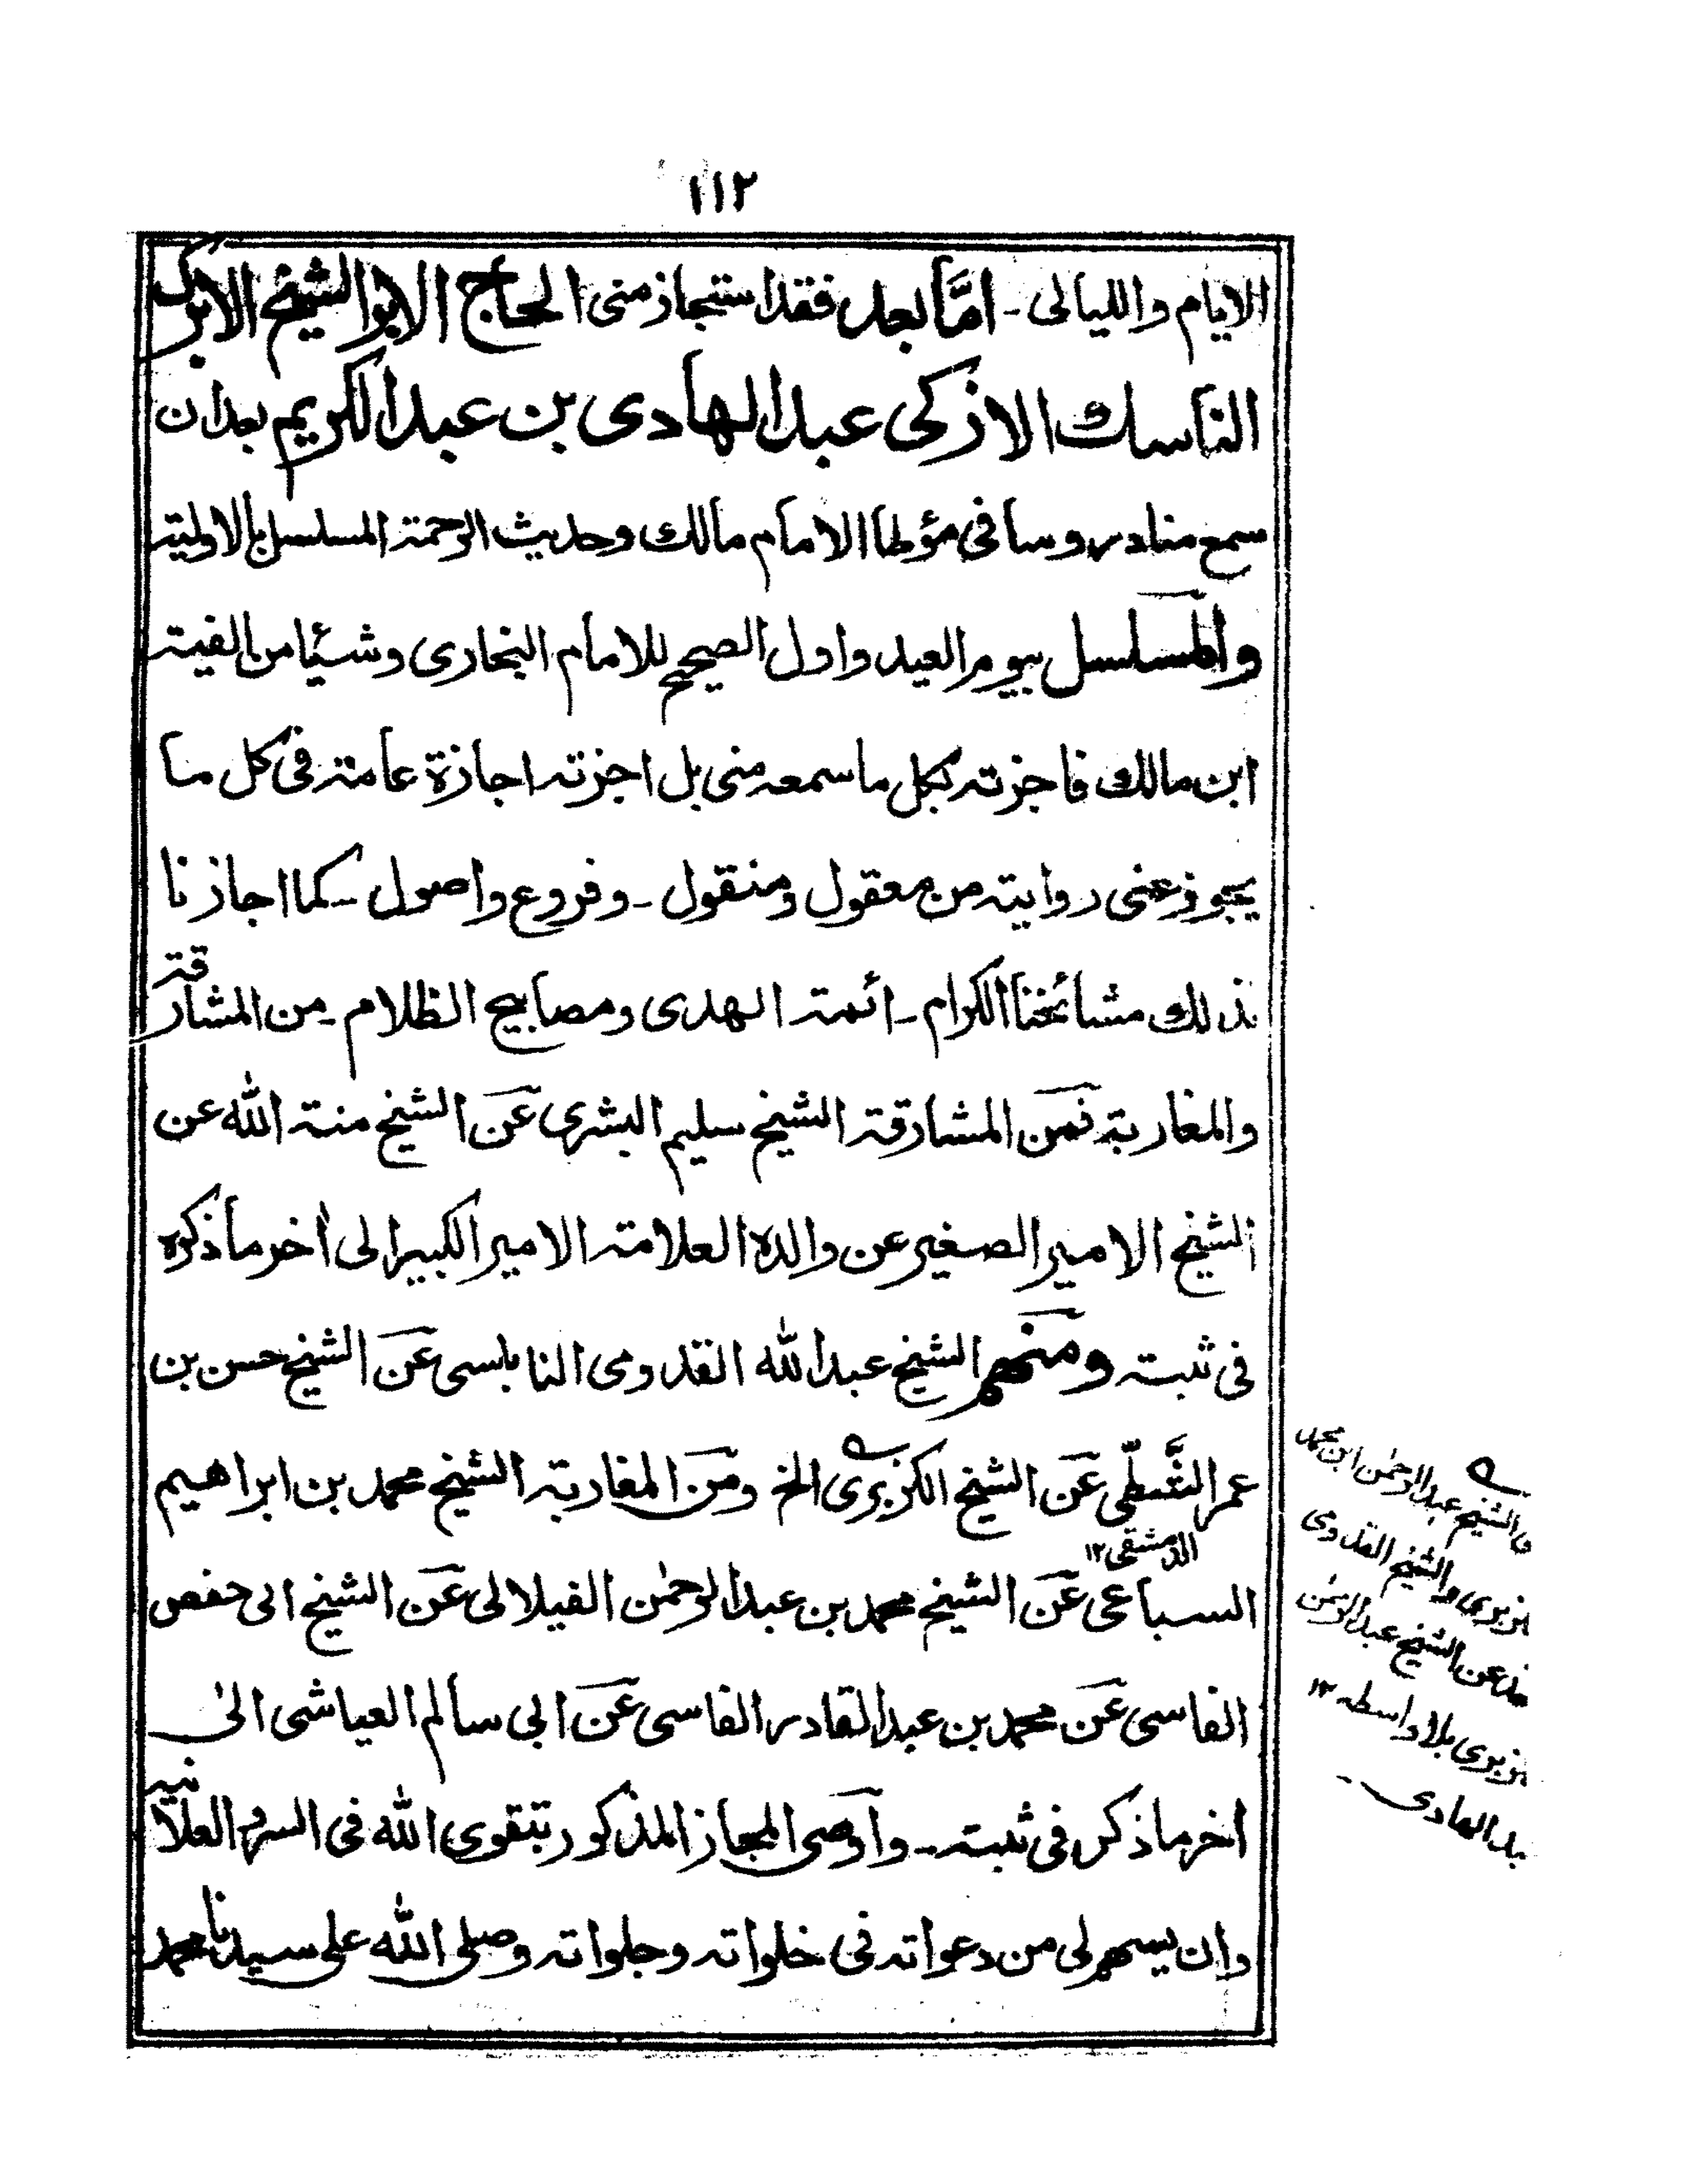 ١١٢
الايام والليالى ـ امَّا بعد فقد استجاز منى الحاج الابر الشيخ الابرك
الناسك الازكى عبد الهادى بن عبد الكريم بعد ان
سمع منا دروسا فى مؤطا الامام مالك وحديث الرحمة المسلسل بالاولية
والمسلسل بيوم العيد واول الصحيح للامام البخارى وشيئا من الفية
ابن مالك فاجزته بكل ما سمعه منى بل اجزته اجازة عامة فى كل ما
يجوز عنى روايته من معقول ومنقول ـ وفروع واصول ـ كما اجازنا
بذلك مشائخنا الكرام ـ ائمة الهدى ومصابيح الظلام ـ من المشارقة
والمغاربة فمن المشارقة الشيخ سليم البشرى عن الشيخ منة الله عن
الشيخ الامير الصغير عن والده العلامة الامير الكبير الى اٰخر ما ذكره
فى ثبته ومنهم الشيخ عبد الله القدومى النابلسى عن الشيخ حسن بن
عمر الشَّطّى عن الشيخ الكزبرى الخ ومن المغاربة الشيخ محمد بن ابراهيم
الدمشقى ١٢
السباعى عن الشيخ محمد بن عبد الرحمٰن الفيلالى عن الشيخ ابى حفص
الفاسى عن محمد بن عبد القادر الفاسى عن ابى سالم العياشى الىٰ
اٰخر ما ذكر فى ثبته ـ واوصى المجاز المذكور بتقوى الله فى السر والعلانية
وان يسهم لى من دعواته فى خلواته وجلواته وصلى الله على سيدنا محمد
الشيخ عبد الرحمٰن ابن محمد
والشيخ القدومى
عن الشيخ عبد الرحمٰن
بلا واسطه ١٢
الهادى